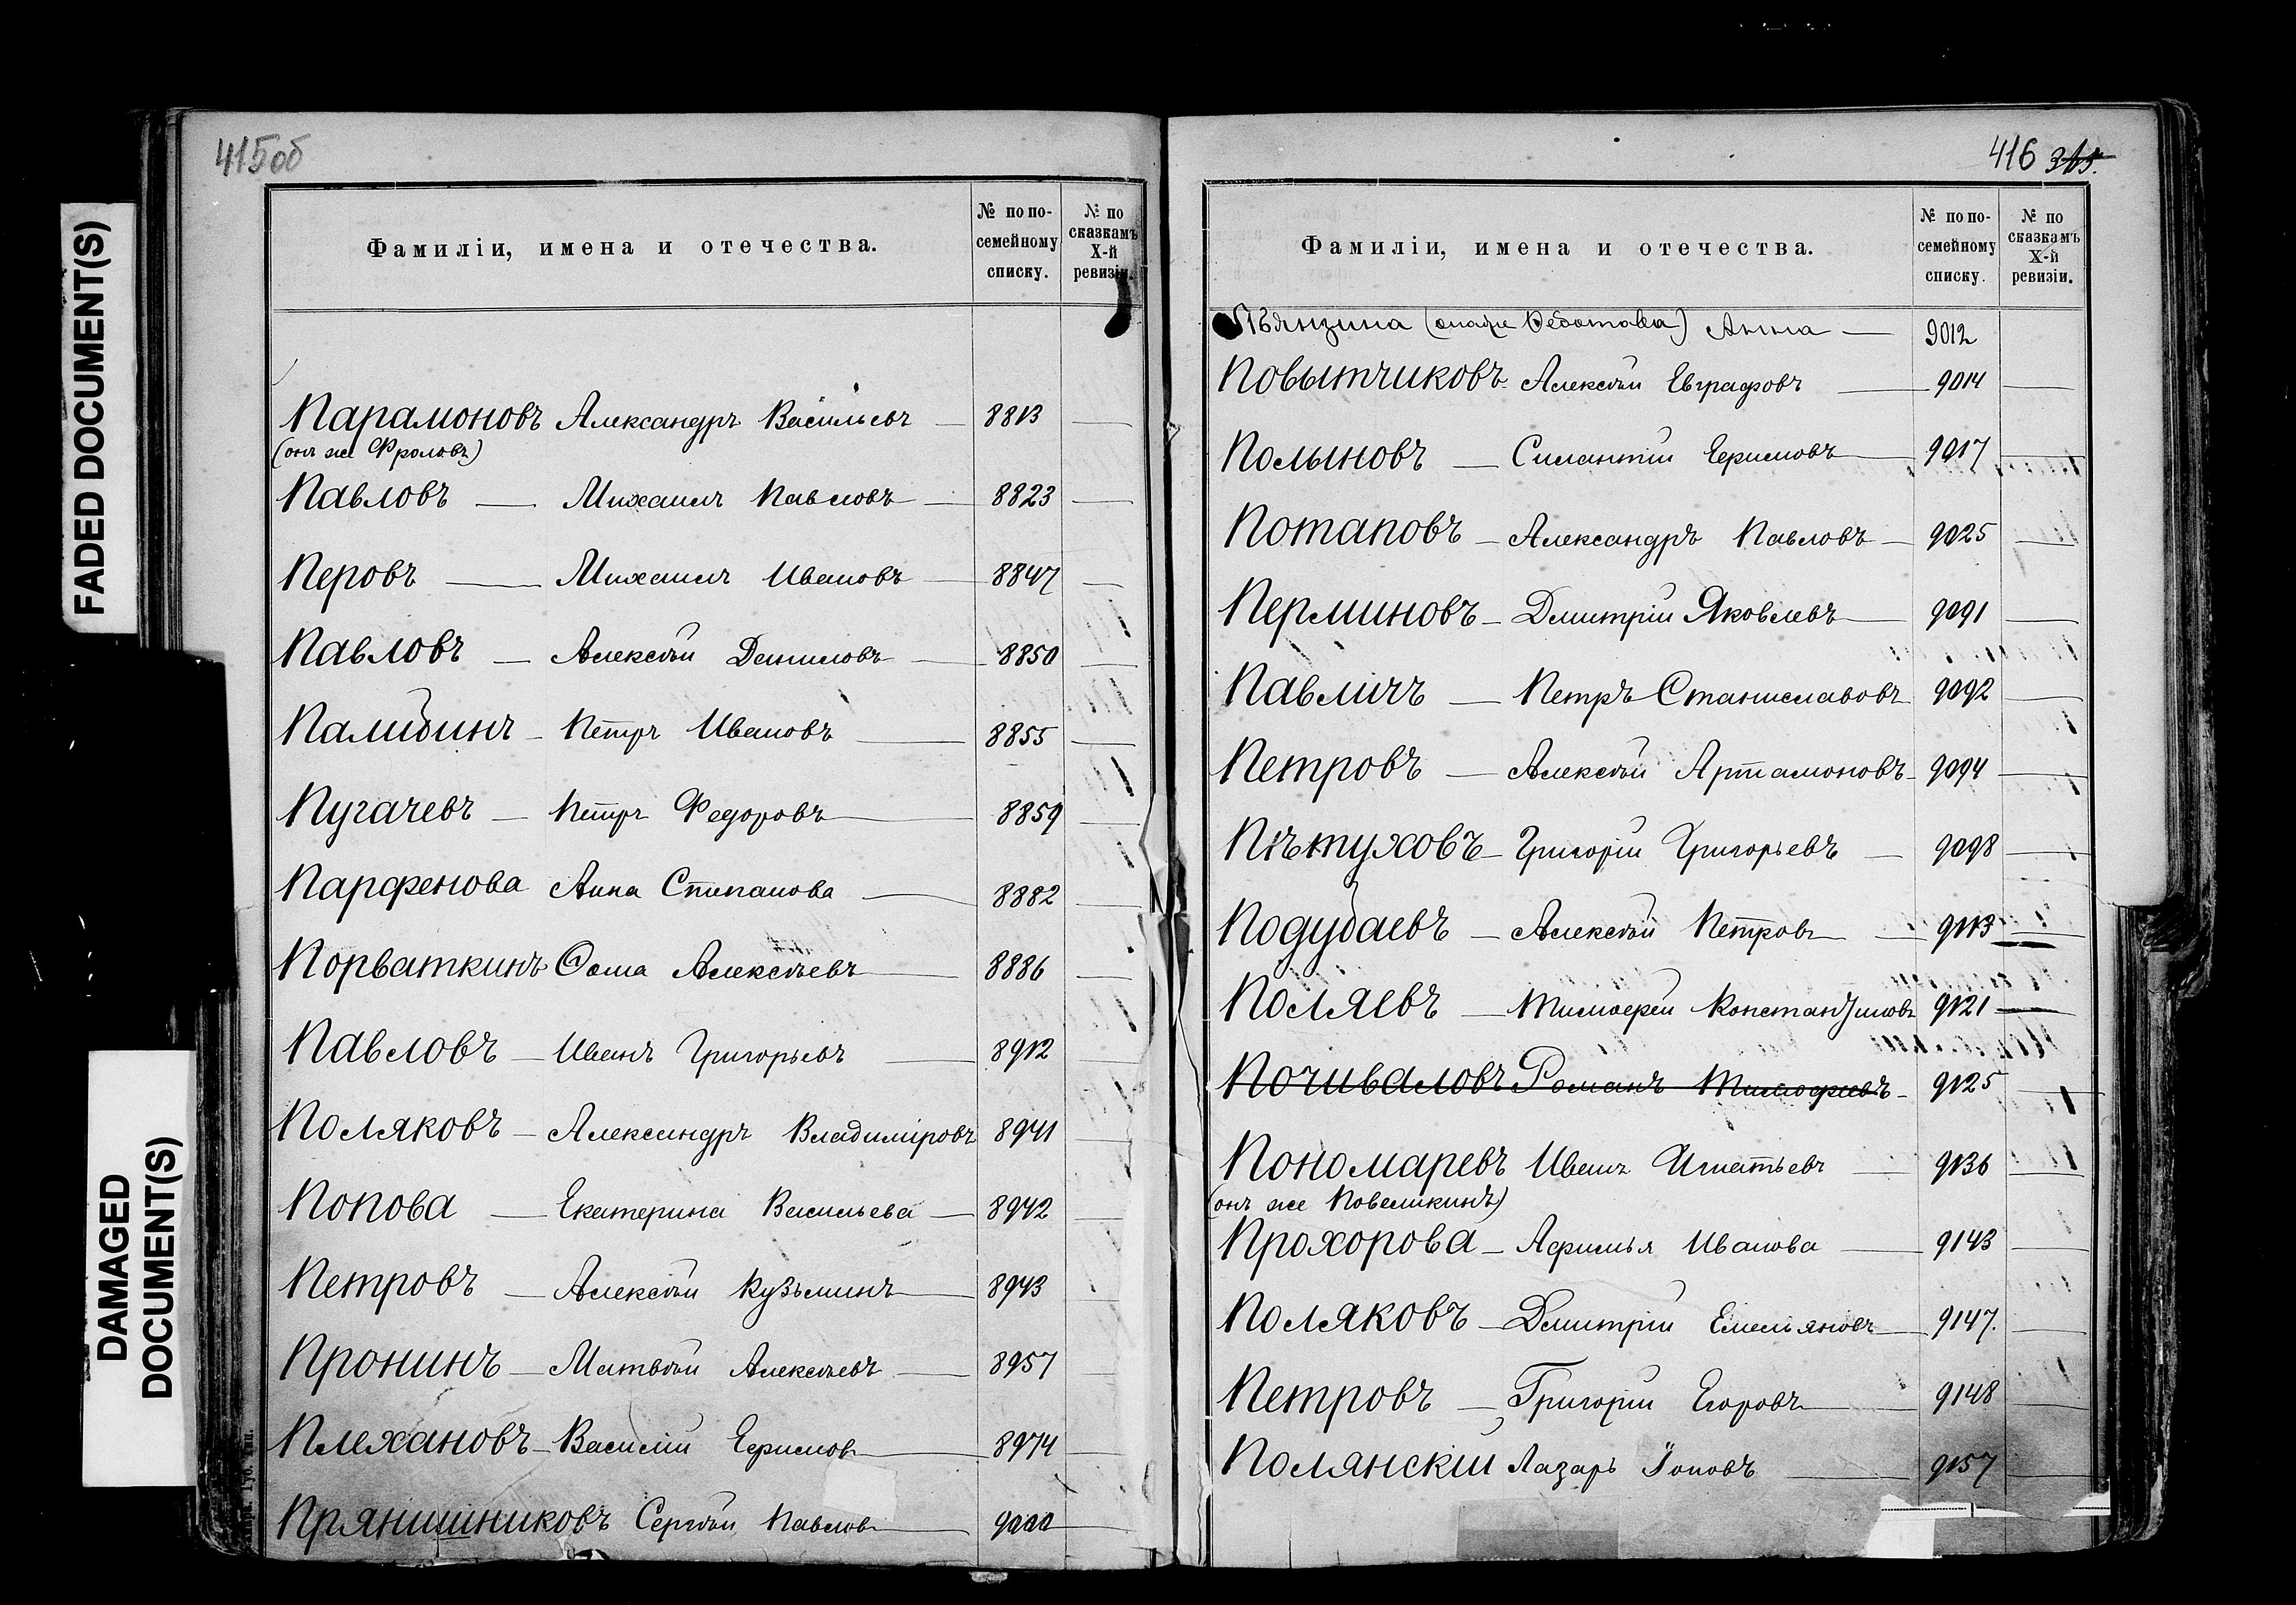 FADED DOCUMENT(S)
DAMAGED
DOCUMENT(S)
415об
Фамиліи, имена и отечества.
№ по по-
семейному
списку.
№ по
сказкамъ
X-й
ревизіи.
Парамоновъ Александръ Васильевъ — 8813 —
(онъ же Фроловъ)
Павловъ — Михаилъ Павловъ — 8823 —
Перовъ — Михаилъ Ивановъ — 8847 —
Павловъ — Алексѣй Даниловъ — 8850 —
Палибинъ — Петръ Ивановъ — 8855 —
Пугачевъ — Петръ Федоровъ — 8859 —
Парфенова Анна Степанова — 8882 —
Порваткинъ Ѳома Алексѣевъ — 8886 —
Павловъ — Иванъ Григорьевъ — 8912 —
Поляковъ — Александръ Владиміровъ 8941 —
Попова — Екатерина Васильева — 8942 —
Петровъ — Алексѣй Кузьминъ — 8943
Пронинъ — Матвѣй Алексѣевъ — 8957 —
Плехановъ — Василій Ефимовъ — 8974 —
Прянишниковъ Сергѣй Павловъ — 9000 —
416 365.
Фамиліи, имена и отечества.
№ по по-
семейному
списку.
№ по
сказкамъ
X-й
ревизіи.
Пьянзина (она же Федотова) Анна — 9012
Повытчиковъ Алексѣй Евграфовъ — 9014 —
Полыновъ — Силантій Ефимовъ — 9017 —
Потаповъ — Александръ Павловъ — 9025 —
Перминовъ — Дмитрій Яковлевъ — 9091 —
Павличъ — Петръ Станиславовъ 9092 —
Петровъ — Алексѣй Артамоновъ — 9094 —
Пѣтуховъ — Григорій Григорьевъ — 9098 —
Подубаевъ — Алексѣй Петровъ — 9113 —
Поляевъ — Тимофей Константиновъ 9121 —
Почиваловъ Романъ Тимофеевъ — 9125 —
Пономаревъ Иванъ Игнатьевъ — 9136 —
(онъ же Повеликинъ)
Прохорова — Афимья Иванова — 9143 —
Поляковъ — Дмитрій Емельяновъ — 9147. —
Петровъ — Григорій Егоровъ — 9148 —
Полянскій Лазарь Іоновъ — 9157 —